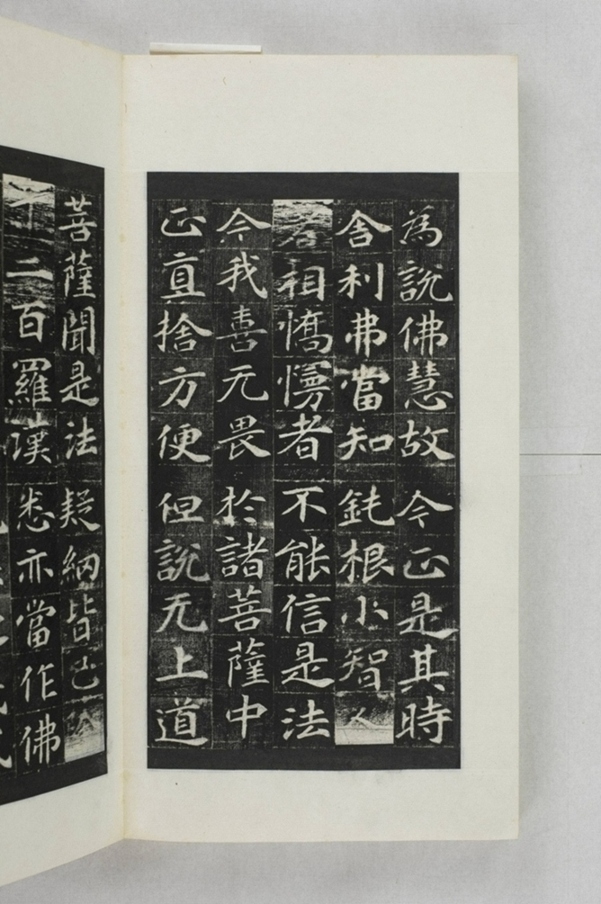 為說佛慧故今正是其時
舍利弗當知鈍根小智人
著相憍慢者不能信是法
今我喜无畏於諸菩薩中
正直捨方便但說无上道
菩薩聞是法疑網皆已除
千二百羅漢悉亦當作佛